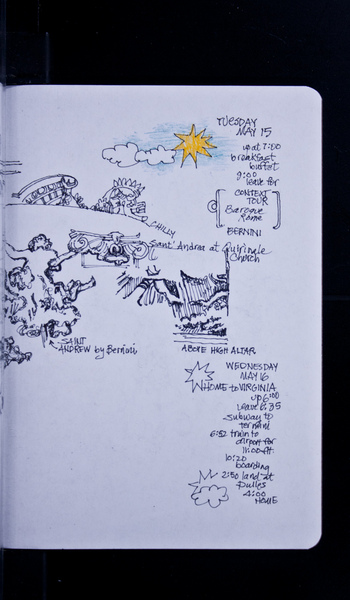 TUESDAY
MAY 15
up at 7:00
breakfast
buffet
9:00
leave for
CONTEXT
TOUR
Baroque
Rome
BERNINI
CHILLY
Sant' Andrea at Quirinale
Church
SAINT
ANDREW by Bernini
ABOVE HIGH ALTAR
WEDNESDAY
MAY 16
HOME to VIRGINIA
up 6:00
leave 6:35
subway to
termini
6:52 train to
airport for
11:00 flt.
10:20
boarding
2:50 land at
Dulles
4:00
HOME